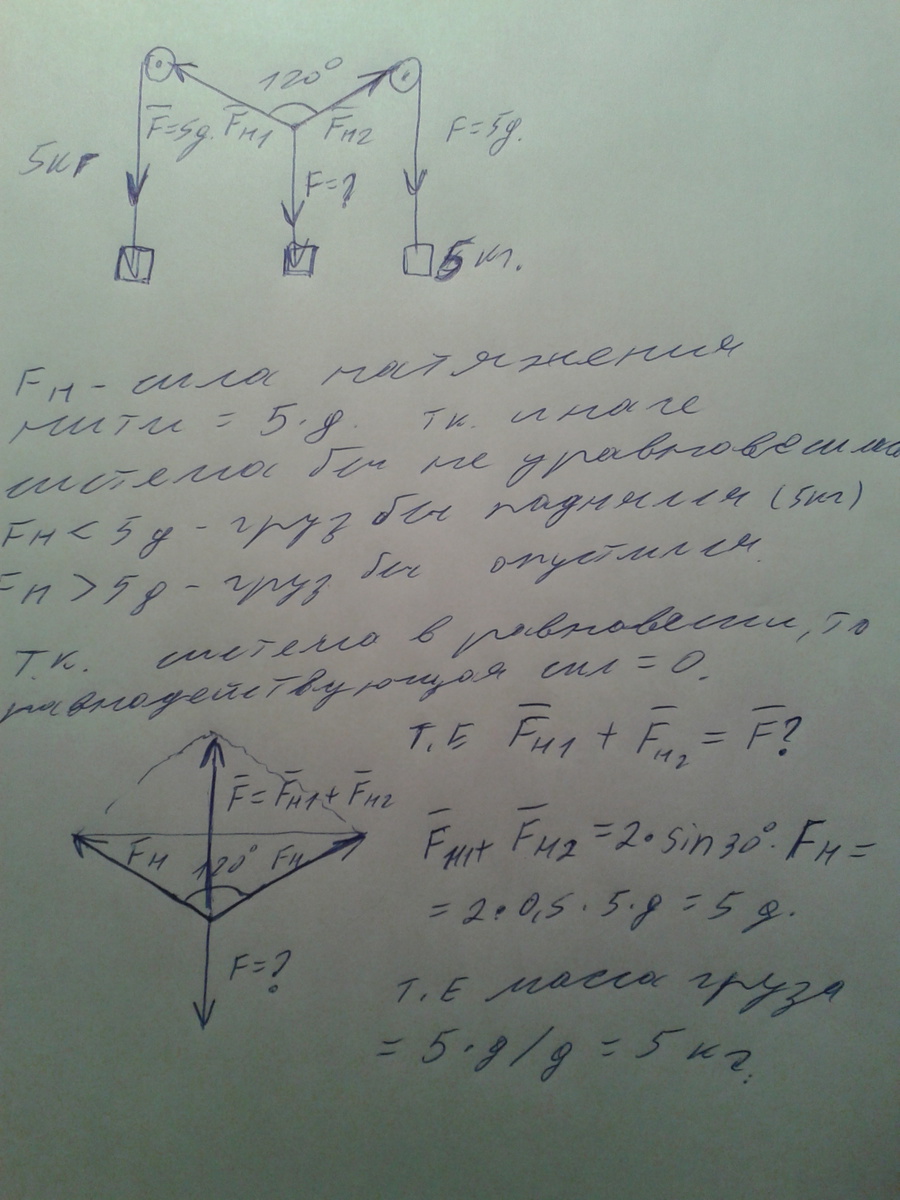 120°
F̅=5g. F̅н1 F̅н2 F=5g.
5кг
F=?
5 кг.
Fн - сила натяжения
нити = 5·g. тк. иначе
система бы не уравновесилась
Fн < 5g - груз бы поднялся (5кг)
Fн > 5g - груз бы опустился.
Т.К. система в равновесии, то
равнодействующая сил = 0.
Т.Е F̅н1 + F̅н2 = F̅?
F̅=F̅н1+F̅н2
Fн 120° Fн
F=?
F̅н1+ F̅н2 =2·sin30°·Fн =
= 2·0,5·5·g = 5 g.
Т.Е масса груза
= 5·g/g = 5 кг.